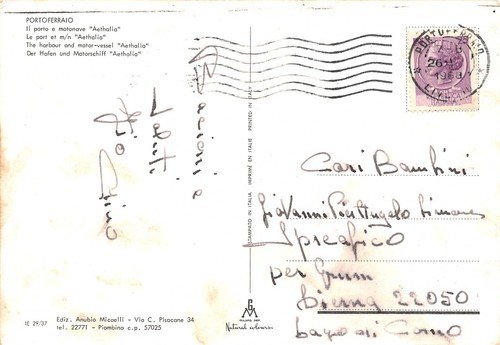 PORTOFERRAIO
Il porto e motonave "Aethalia"
Le port et m/n "Aethalia"
The harbour and motor-vessel "Aethalia"
Der Hafen und Motorschiff "Aethalia"
Bacioni a
tutti
Zio
PORTOFERRAIO
1968
STAMPATO IN ITALIA IMPRIMÉ EN ITALIE PRINTED IN ITALY
Cari Bambini
Giovanni Pierangelo Simone
Spreafico
per
22050
Lago di Como
IE 29/37
Ediz. Anubio Miccelli - Via C. Pisacane 34
tel. 22771 - Piombino c.p. 57025
Natural colours